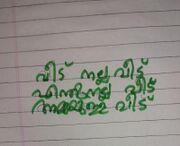 വീട് നല്ല വീട്
എന്തുനല്ല വീട്
നമ്മുടെ വീട്